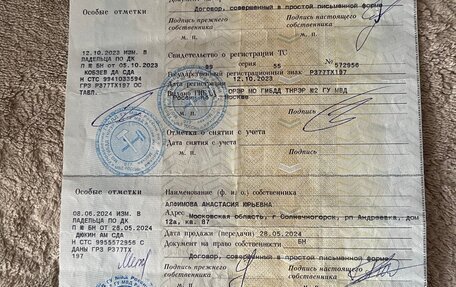 Договор, совершенный в простой письменной форме
Особые отметки
Подпись прежнего собственника
Подпись настоящего собственника
м. п.
м. п.
12.10.2023 ИЗМ. В
ВЛАДЕЛЬЦА ПО ДК
П Ю БН ОТ 08.10.2023
КОБЗЕВ ДА СДА
Н СТС 9941033594
ГРЗ Р377ТХ197 ОС
ТАВЛ.
Свидетельство о регистрации ТС
серия 55 № 572956
Государственный регистрационный знак Р377ТХ197
Дата регистрации 12.10.2023
Выдано ГИБДД ОРЭР МО ГИБДД ТНРЭР №2 ГУ МВД
России по г. Москве
м. п.
Подпись
Отметка о снятии с учета
Дата снятия с учета
м. п.
Подпись
Особые отметки
08.06.2024 ИЗМ. В
ВЛАДЕЛЬЦА ПО ДК
П Ю БН ОТ 28.05.2024
ДЮКИН АМ СДА
Н СТС 9955572956 С
ДАНЫ ГРЗ Р377ТХ
197
Наименование (ф. и. о.) собственника
АЛФИМОВА АНАСТАСИЯ ЮРЬЕВНА
Адрес Московская область, г Солнечногорск, рп Андреевка, дом
12а, кв. 87
Дата продажи (передачи) 28.05.2024
Документ на право собственности БН
Договор, совершенный в простой письменной форме
Подпись прежнего собственника
Подпись настоящего собственника
м. п.
м. п.